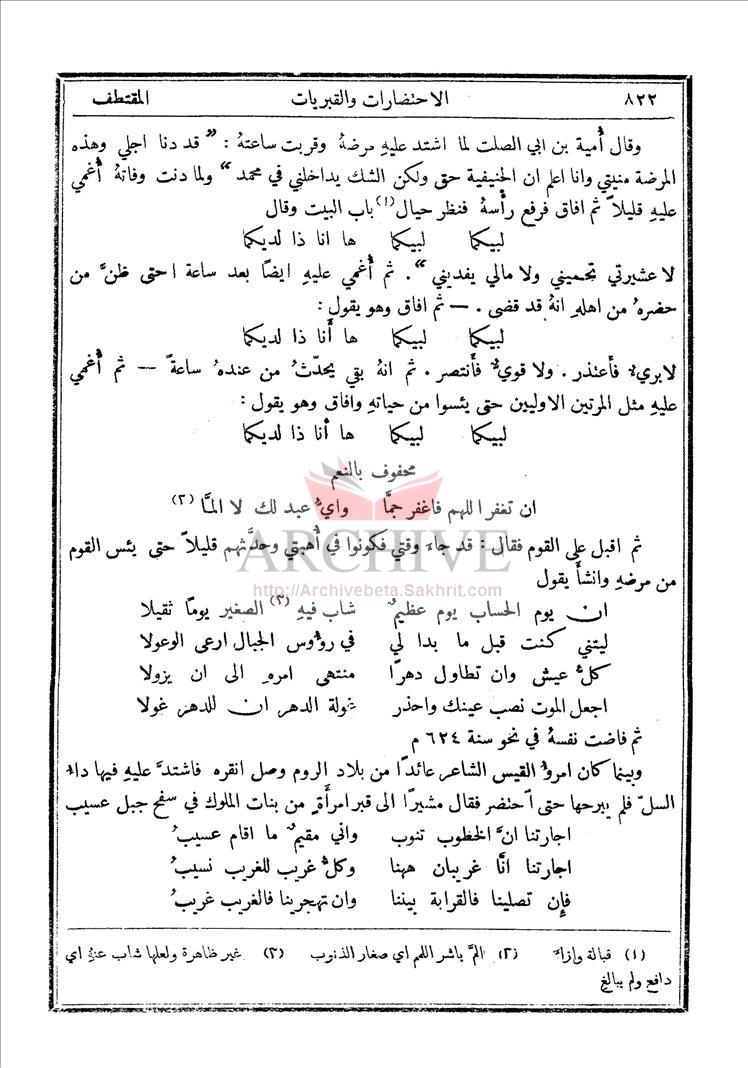 ٨٢٢ الاحتضارات والقبريات المقتطف
وقال أُمية بن ابي الصلت لما اشتد عليهِ مرضهُ وقربت ساعتهُ : " قد دنا اجلي وهذه
المرضة منيتي وانا اعلم ان الحنيفية حق ولكن الشك يداخلني في محمد " ولما دنت وفاتهُ أُغمي
عليهِ قليلاً ثم افاق فرفع رأسهُ فنظر حيال(١) باب البيت وقال
لبيكما لبيكما ها انا ذا لديكما
لا عشيرتي تحميني ولا مالي يفديني " . ثم أُغمي عليهِ ايضاً بعد ساعة احتى ظنَّ من
حضرهُ من اهلهِ انهُ قد قضى . — ثم افاق وهو يقول :
لبيكما لبيكما ها أنا ذا لديكما
لا بريءٌ فأعتذر . ولا قويٌّ فأنتصر . ثم انهُ بقي يحدّثُ من عندهُ ساعةً — ثم أُغمي
عليهِ مثل المرتين الاوليين حتى يئسوا من حياتهِ وافاق وهو يقول :
لبيكما لبيكما ها أنا ذا لديكما
محفوف بالنعم
ان تغفر اللهم فاغفر جمَّا وايُّ عبد لك لا المَّا (٢)
ثم اقبل على القوم فقال : قد جاءَ وقتي فكونوا في أُهبتي وحدَّثهم قليلاً حتى يئس القوم
من مرضهِ وانشأ يقول
ان يوم الحساب يوم عظيمٌ شاب فيهِ (٣) الصغير يوماً ثقيلا
ليتني كنت قبل ما بدا لي في رؤوس الجبال ارعى الوعولا
كلُّ عيش وان تطاول دهراً منتهى امرهِ الى ان يزولا
اجعل الموت نصب عينك واحذر غولة الدهر ان للدهر غولا
ثم فاضت نفسهُ في نحو سنة ٦٢٤ م
وبينما كان امروءُ القيس الشاعر عائداً من بلاد الروم وصل انقره فاشتدَّ عليهِ فيها داءُ
السلّ فلم يبرحها حتى احتضر فقال مشيراً الى قبر امرأَةٍ من بنات الملوك في سفح جبل عسيب
اجارتنا انَّ الخطوب تنوب واني مقيمٌ ما اقام عسيبُ
اجارتنا انَّا غريبان ههنا وكلُّ غريب للغريب نسيبُ
فإن تصلينا فالقرابة بيننا وان تهجرينا فالغريب غريبُ
(١) قبالة وإزاءَ (٢) المَّ باشر اللمم اي صغار الذنوب (٣) غير ظاهرة ولعلها شاب عنهُ اي
دافع ولم يبالغ
ARCHIVE
http://Archivebeta.Sakhrit.com